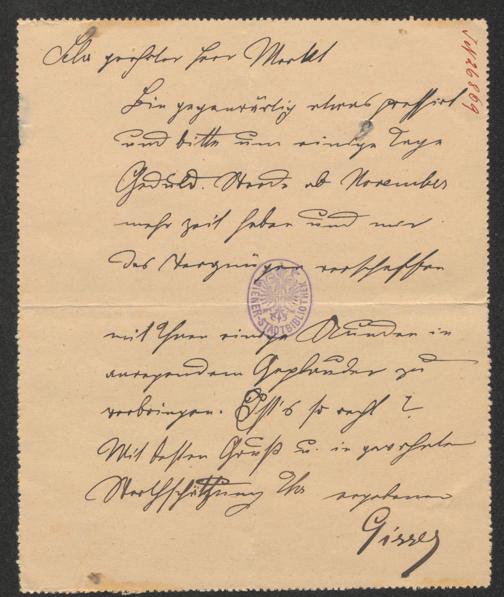 Sehr geehrter Herr Merkl
Bin gegenwärtig etwas pressirt
und bitte um einige Tage
Geduld. Werde ab November
mehr Zeit haben und mir
das Vergnügen verschaffen
mit Ihnen einige Stunden in
anregendem Geplauder zu
verbringen. Ist's so recht?
Mit besten Gruß u. in
Werthschätzung Ihr ergebener
WIENER-STADTBIBLIOTHEK